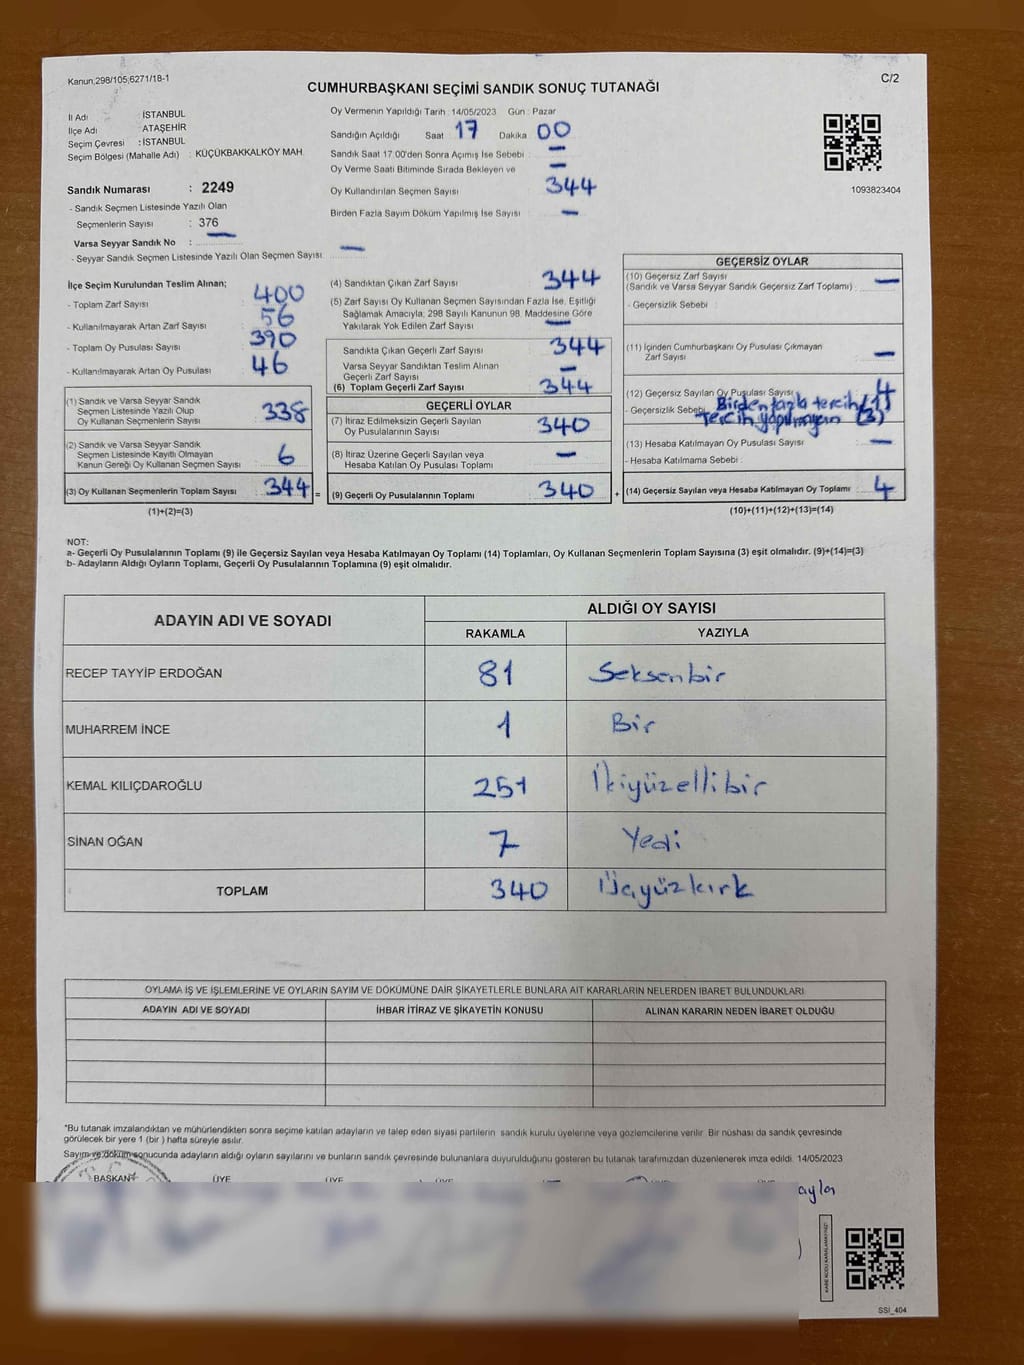 Kanun,298/105;6271/18-1
C/2
CUMHURBAŞKANI SEÇİMİ SANDIK SONUÇ TUTANAĞI
İl Adı : İSTANBUL
İlçe Adı : ATAŞEHİR
Seçim Çevresi : İSTANBUL
Seçim Bölgesi (Mahalle Adı) : KÜÇÜKBAKKALKÖY MAH.
Sandık Numarası : 2249
- Sandık Seçmen Listesinde Yazılı Olan
Seçmenlerin Sayısı : 376
Varsa Seyyar Sandık No : —
- Seyyar Sandık Seçmen Listesinde Yazılı Olan Seçmen Sayısı: —
Oy Vermenin Yapıldığı Tarih :14/05/2023 Gün : Pazar
Sandığın Açıldığı Saat 17 Dakika 00
Sandık Saat 17:00'den Sonra Açımış İse Sebebi : —
Oy Verme Saati Bitiminde Sırada Bekleyen ve —
Oy Kullandırılan Seçmen Sayısı : 344
Birden Fazla Sayım Döküm Yapılmış İse Sayısı : —
1093823404
İlçe Seçim Kurulundan Teslim Alınan;
- Toplam Zarf Sayısı : 400
- Kullanılmayarak Artan Zarf Sayısı : 56
- Toplam Oy Pusulası Sayısı : 390
- Kullanılmayarak Artan Oy Pusulası : 46
(1) Sandık ve Varsa Seyyar Sandık
Seçmen Listesinde Yazılı Olup
Oy Kullanan Seçmenlerin Sayısı : 338
(2) Sandık ve Varsa Seyyar Sandık
Seçmen Listesinde Kayıtlı Olmayan
Kanun Gereği Oy Kullanan Seçmen Sayısı : 6
(3) Oy Kullanan Seçmenlerin Toplam Sayısı : 344 =
(1)+(2)=(3)
(4) Sandıktan Çıkan Zarf Sayısı : 344
(5) Zarf Sayısı Oy Kullanan Seçmen Sayısından Fazla İse, Eşitliği
Sağlamak Amacıyla, 298 Sayılı Kanunun 98. Maddesine Göre
Yakılarak Yok Edilen Zarf Sayısı : —
Sandıkta Çıkan Geçerli Zarf Sayısı : 344
Varsa Seyyar Sandıktan Teslim Alınan
Geçerli Zarf Sayısı : —
(6) Toplam Geçerli Zarf Sayısı : 344
GEÇERLİ OYLAR
(7) İtiraz Edilmeksizin Geçerli Sayılan
Oy Pusulalarının Sayısı : 340
(8) İtiraz Üzerine Geçerli Sayılan veya
Hesaba Katılan Oy Pusulası Toplamı : —
(9) Geçerli Oy Pusulalarının Toplamı : 340 +
GEÇERSİZ OYLAR
(10) Geçersiz Zarf Sayısı
(Sandık ve Varsa Seyyar Sandık Geçersiz Zarf Toplamı) : —
- Geçersizlik Sebebi :
(11) İçinden Cumhurbaşkanı Oy Pusulası Çıkmayan
Zarf Sayısı : —
(12) Geçersiz Sayılan Oy Pusulası Sayısı : 4
- Geçersizlik Sebebi : Birden fazla tercih (1)
Tercih yapılmayan (3)
(13) Hesaba Katılmayan Oy Pusulası Sayısı : —
- Hesaba Katılmama Sebebi :
(14) Geçersiz Sayılan veya Hesaba Katılmayan Oy Toplamı : 4
(10)+(11)+(12)+(13)=(14)
NOT:
a- Geçerli Oy Pusulalarının Toplamı (9) ile Geçersiz Sayılan veya Hesaba Katılmayan Oy Toplamı (14) Toplamları, Oy Kullanan Seçmenlerin Toplam Sayısına (3) eşit olmalıdır. (9)+(14)=(3)
b- Adayların Aldığı Oyların Toplamı, Geçerli Oy Pusulalarının Toplamına (9) eşit olmalıdır.
ADAYIN ADI VE SOYADI
ALDIĞI OY SAYISI
RAKAMLA YAZIYLA
RECEP TAYYİP ERDOĞAN 81 Seksenbir
MUHARREM İNCE 1 Bir
KEMAL KILIÇDAROĞLU 251 İkiyüzellibir
SİNAN OĞAN 7 Yedi
TOPLAM 340 Üçyüzkırk
OYLAMA İŞ VE İŞLEMLERİNE VE OYLARIN SAYIM VE DÖKÜMÜNE DAİR ŞİKAYETLERLE BUNLARA AİT KARARLARIN NELERDEN İBARET BULUNDUKLARI
ADAYIN ADI VE SOYADI İHBAR İTİRAZ VE ŞİKAYETİN KONUSU ALINAN KARARIN NEDEN İBARET OLDUĞU
*Bu tutanak imzalandıktan ve mühürlendikten sonra seçime katılan adayların ve talep eden siyasi partilerin sandık kurulu üyelerine veya gözlemcilerine verilir. Bir nüshası da sandık çevresinde
görülecek bir yere 1 (bir ) hafta süreyle asılır.
Sayım ve döküm sonucunda adayların aldığı oyların sayılarını ve bunların sandık çevresinde bulunanlara duyurulduğunu gösteren bu tutanak tarafımızdan düzenlenerek imza edildi. 14/05/2023
BAŞKAN ÜYE ÜYE ÜYE
SSI_404